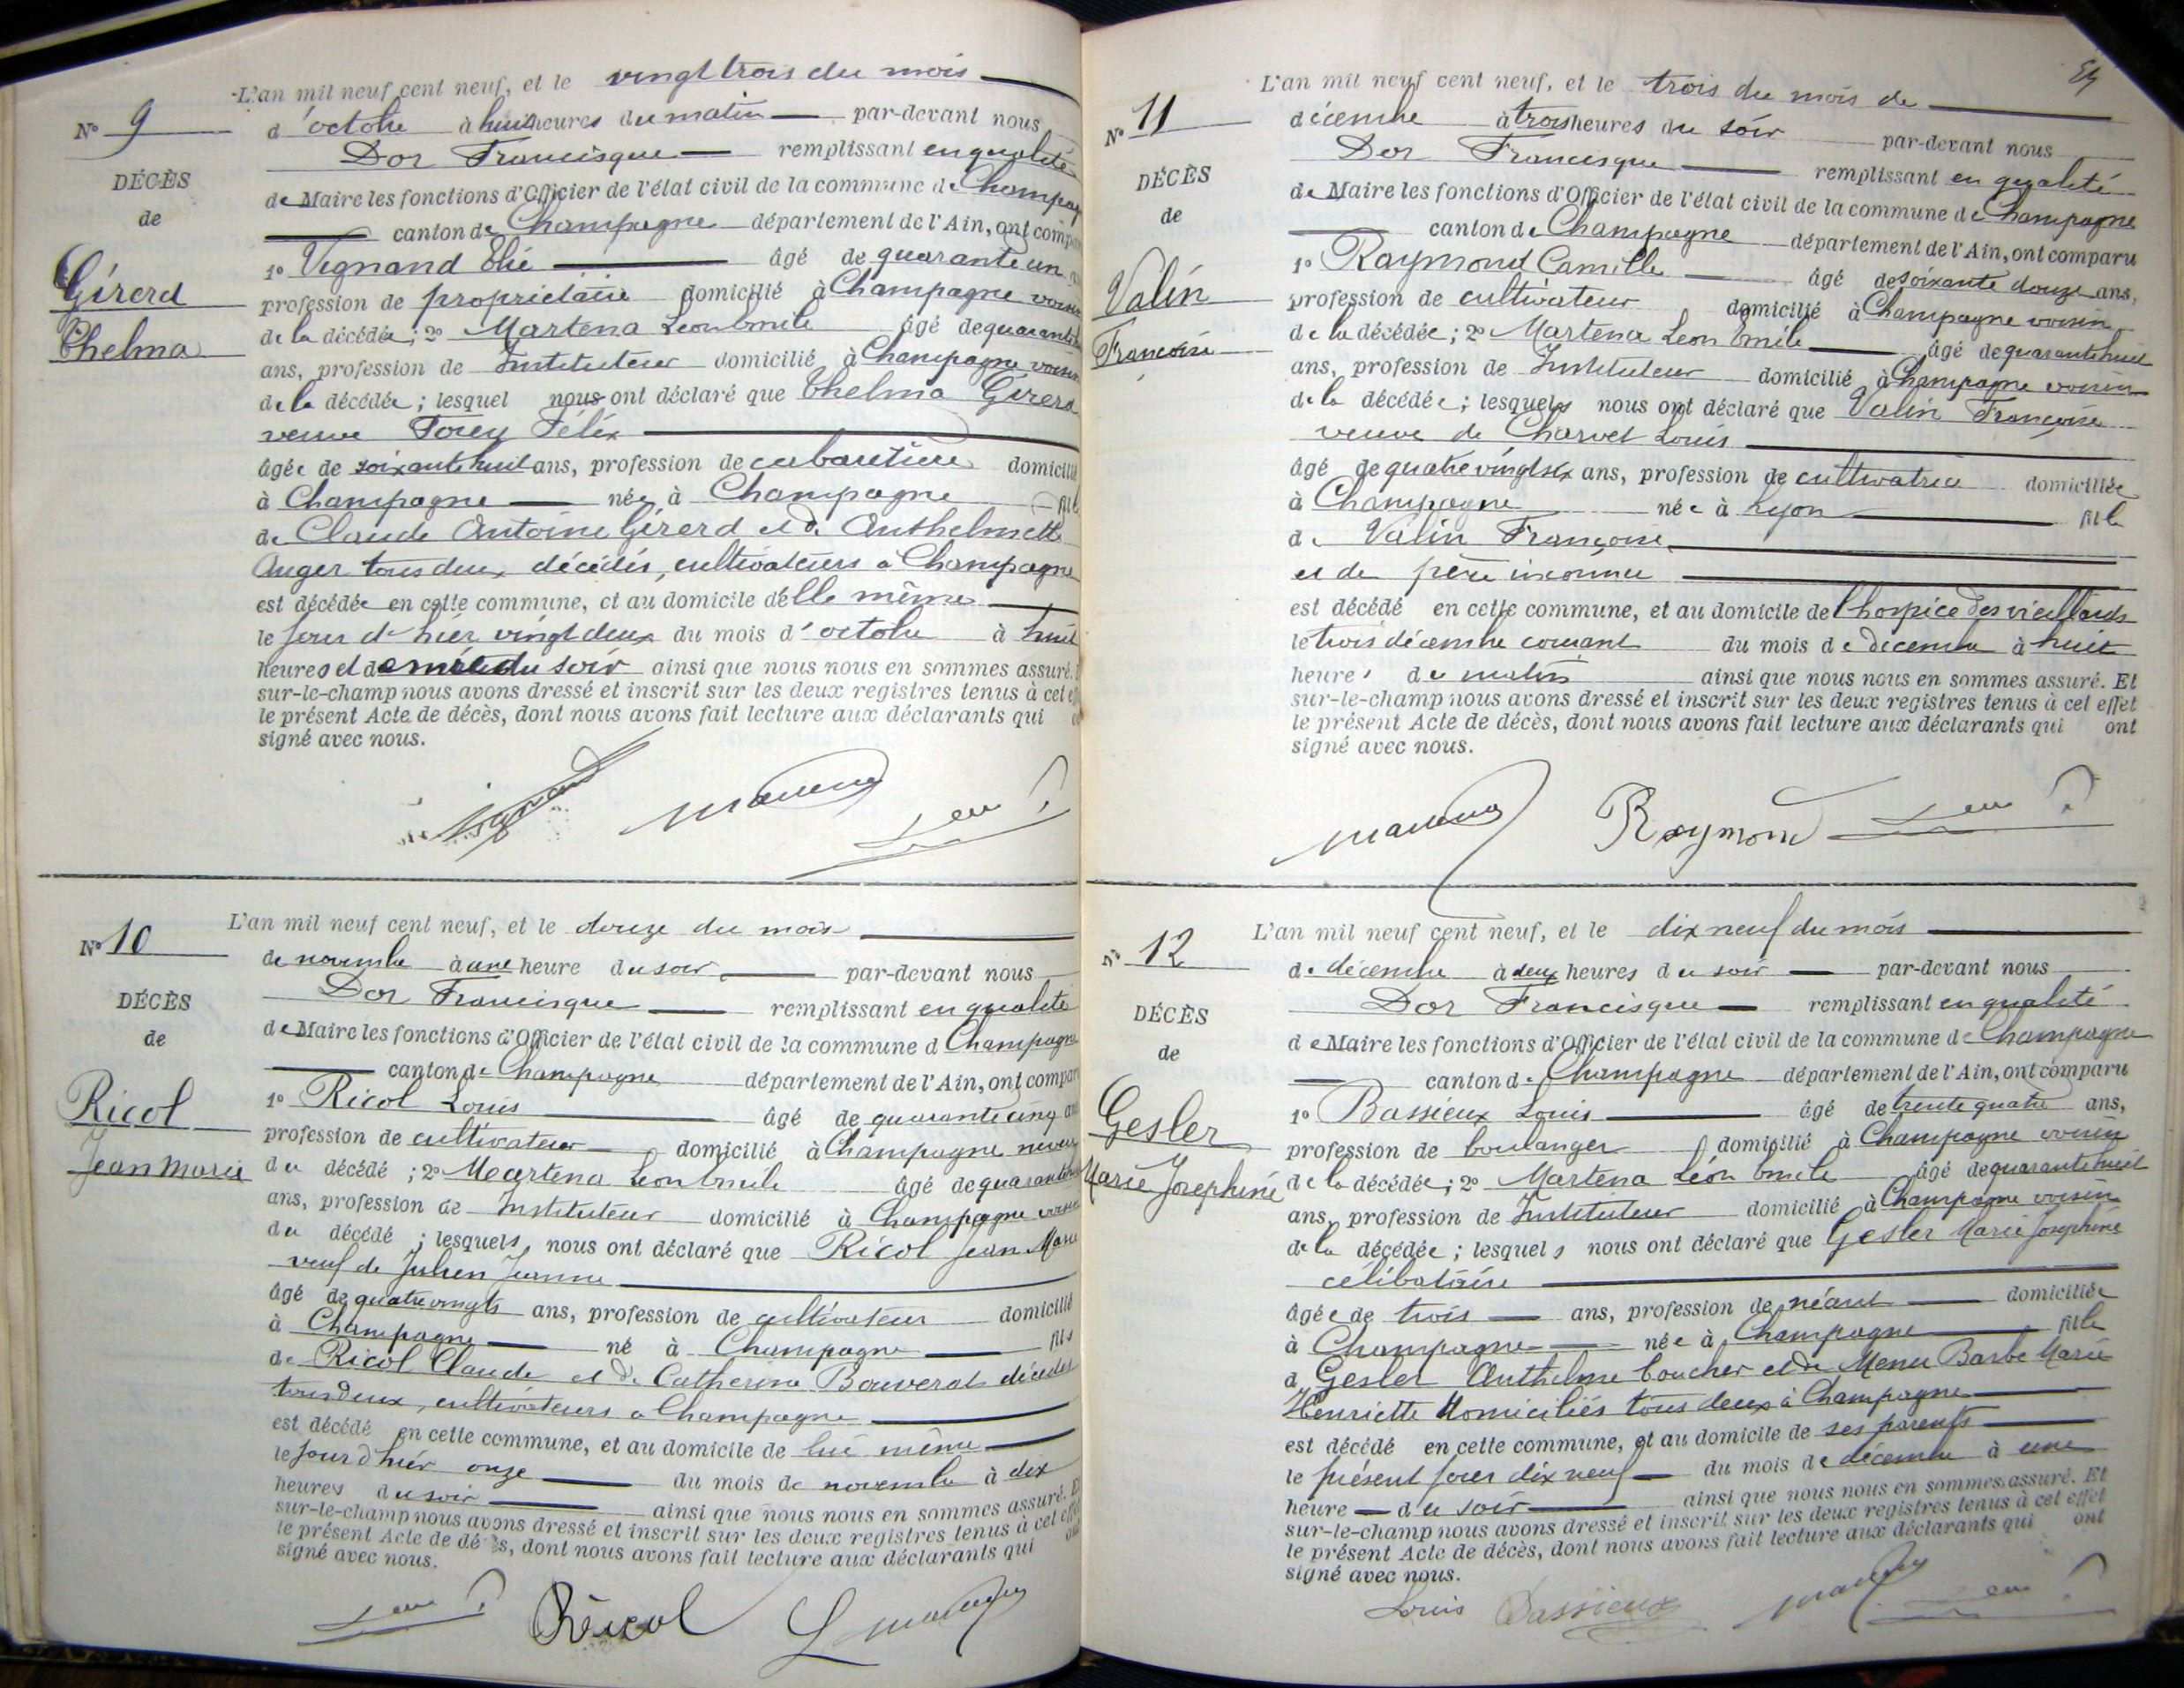 L'an mil neuf cent neuf, et le vingt trois du mois
N° 9
d'octobre à huit heures du matin par-devant nous
Dor Francisque remplissant en qualité
DÉCÈS
de Maire les fonctions d'Officier de l'état civil de la commune de Champag
de
canton de Champagne département de l'Ain, ont compa
1° Vignand Elie âgé de quarante un
Girerd
profession de propriétaire domicilié à Champagne voisin
Thelma
de la décédée ; 2° Martena Leon Emile âgé de quarante
ans, profession de Instituteur domicilié à Champagne voisin
de la décédée ; lesquel nous ont déclaré que Thelma Girerd
veuve Félix
âgée de soixante huit ans, profession de cabaretière domicilié
à Champagne née à Champagne fille
de Claude Antoine Girerd et de Anthelmette
Auger tous deux décédés, cultivateurs à Champagne
est décédée en cette commune, et au domicile d'elle même
le jour d'hier vingt deux du mois d'octobre à huit
heures et demie du soir ainsi que nous nous en sommes assuré.
sur-le-champ nous avons dressé et inscrit sur les deux registres tenus à cet eff
le présent Acte de décès, dont nous avons fait lecture aux déclarants qui
signé avec nous.
L'an mil neuf cent neuf, et le douze du mois
N° 10
de novembre à une heure du soir par-devant nous
Dor Francisque remplissant en qualité
DÉCÈS
de Maire les fonctions d'Officier de l'état civil de la commune d Champagne
de
canton de Champagne département de l'Ain, ont compar
1° Ricol Louis âgé de quarante cinq ans
Ricol
profession de cultivateur domicilié à Champagne neveu
Jean Marie
du décédé ; 2° Martena Leon Emile âgé de quarante
ans, profession de Instituteur domicilié à Champagne voisin
du décédé ; lesquels nous ont déclaré que Ricol Jean Marie
veuf de Julien Jeanne
âgé de quatre vingts ans, profession de cultivateur domicilié
à Champagne né à Champagne fils
de Ricol Claude et de Catherine Bouverat décédés
tous deux, cultivateurs à Champagne
est décédé en cette commune, et au domicile de lui même
le jour d'hier onze du mois de novembre à dix
heures du soir ainsi que nous nous en sommes assuré. Et
sur-le-champ nous avons dressé et inscrit sur les deux registres tenus à cet effe
le présent Acte de décès, dont nous avons fait lecture aux déclarants qui
signé avec nous.
Ricol
L'an mil neuf cent neuf, et le trois du mois de
N° 11
décembre à trois heures du soir par-devant nous
Dor Francisque remplissant en qualité
DÉCÈS
de Maire les fonctions d'Officier de l'état civil de la commune de Champagne
de
canton de Champagne département de l'Ain, ont comparu
1° Raymond Camille âgé de soixante douze ans,
Valin
profession de cultivateur domicilié à Champagne voisin
Françoise
de la décédée ; 2° Martena Leon Emile âgé de quarante huit
ans, profession de Instituteur domicilié à Champagne voisin
de la décédée ; lesquels nous ont déclaré que Valin Françoise
veuve de Charvet Louis
âgé de quatre vingt six ans, profession de cultivatrice domiciliée
à Champagne née à Lyon fille
de Valin Françoise
et de père inconnu
est décédé en cette commune, et au domicile de l'hospice des vieillards
le trois décembre courant du mois de decembre à huit
heures du matin ainsi que nous nous en sommes assuré. Et
sur-le-champ nous avons dressé et inscrit sur les deux registres tenus à cet effet
le présent Acte de décès, dont nous avons fait lecture aux déclarants qui ont
signé avec nous.
Raymond
L'an mil neuf cent neuf, et le dix neuf du mois
N° 12
de décembre à deux heures du soir par-devant nous
Dor Francisque remplissant en qualité
DÉCÈS
de Maire les fonctions d'Officier de l'état civil de la commune de Champagne
de
canton de Champagne département de l'Ain, ont comparu
1° Bassieux Louis âgé de trente quatre ans,
Gesler
profession de boulanger domicilié à Champagne voisin
Marie Josephine
de la décédée ; 2° Martena Léon Emile âgé de quarante huit
ans, profession de Instituteur domicilié à Champagne voisin
de la décédée ; lesquels nous ont déclaré que Gesler Marie Josephine
célibataire
âgée de trois ans, profession de néant domiciliée
à Champagne née à Champagne fille
d Gesler Anthelme boucher et de Menu Barbe Marie
Henriette domiciliés tous deux à Champagne
est décédé en cette commune, et au domicile de ses parents
le présent jour dix neuf du mois de décembre à une
heure du soir ainsi que nous nous en sommes assuré. Et
sur-le-champ nous avons dressé et inscrit sur les deux registres tenus à cet effet
le présent Acte de décès, dont nous avons fait lecture aux déclarants qui ont
signé avec nous.
Louis Bassieux